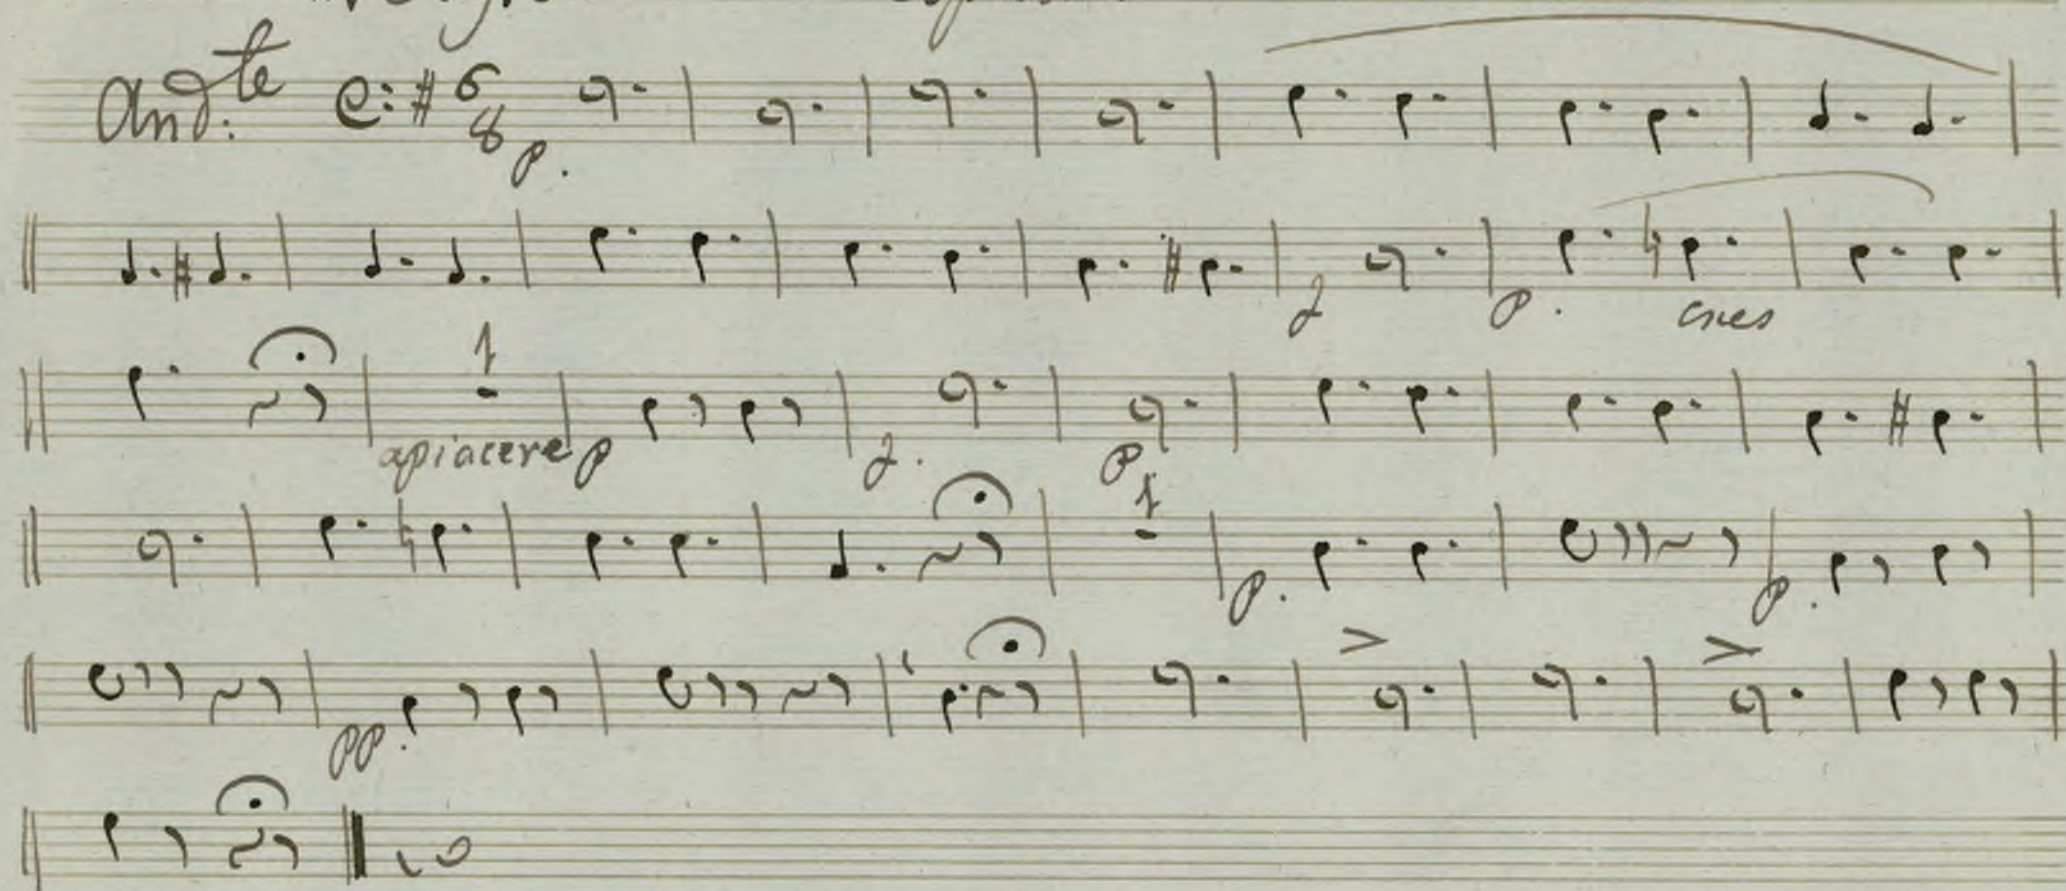 And.te 6 8
p.
f p. cres
1
apiacere p f. p
1
p. p.
pp.